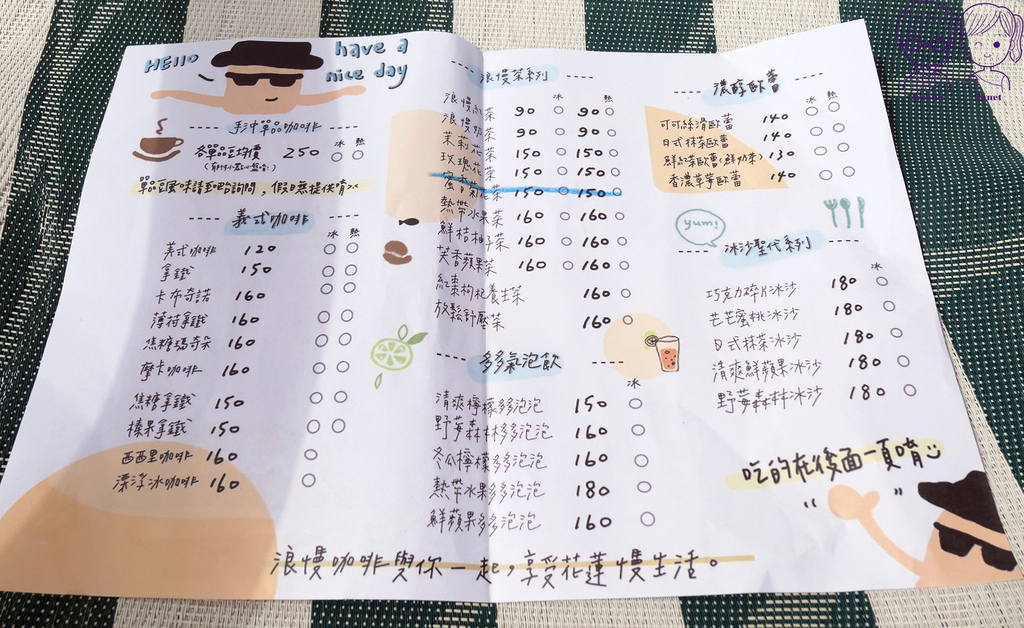 HEllO
have a
nice day
手沖單品咖啡
冰 熱
各單品豆均價 250
單品豆風味請至吧台詢問,假日無提供唷
義式咖啡
冰 熱
美式咖啡 120
拿鐵 150
卡布奇諾 160
薄荷拿鐵 160
焦糖瑪奇朵 160
摩卡咖啡 160
焦糖拿鐵 150
榛果拿鐵 150
西西里咖啡 160
漂浮冰咖啡 160
浪慢茶系列
冰 熱
浪慢紅茶 90 90
浪慢奶茶 90 90
茉莉花茶 150 150
玫瑰花茶 150 150
蜜香菊花茶 150 150
熱帶水果茶 160 160
鮮桔柚子茶 160 160
芙香蘋果茶 160 160
紅棗枸杞養生茶 160
放鬆舒壓茶 160
多多氣泡飲
冰
清爽檸檬多多泡泡 150
野莓森林多多泡泡 160
冬瓜檸檬多多泡泡 160
熱帶水果多多泡泡 180
鮮蘋果多多泡泡 160
濃醇歐蕾
冰 熱
可可絲滑歐蕾 140
日式抹茶歐蕾 140
鮮紅茶歐蕾(鮮奶茶) 130
香濃草芋歐蕾 140
yum!
冰沙聖代系列
冰
巧克力碎片冰沙 180
芒芒蜜桃冰沙 180
日式抹茶冰沙 180
清爽鮮蘋果冰沙 180
野莓森林冰沙 180
吃的在後面一頁唷
浪慢咖啡與你一起,享受花蓮慢生活。